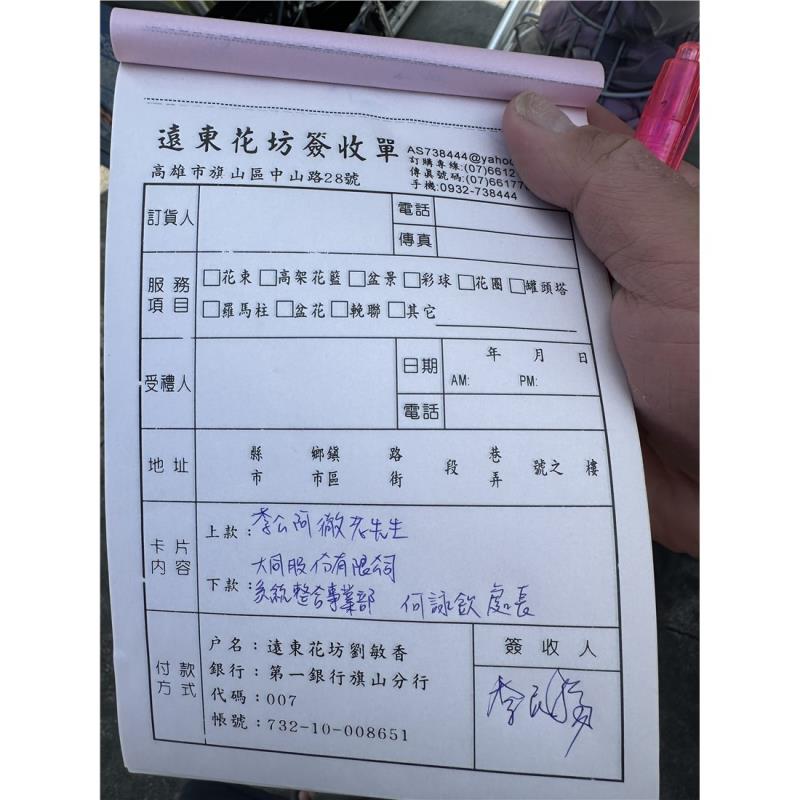 遠東花坊簽收單
AS738444@yahoo
高雄市旗山區中山路28號
訂購專線:(07)6612
傳真號碼:(07)66177
手機:0932-738444
訂貨人 電話
傳真
服務項目 □花束 □高架花籃 □盆景 □彩球 □花圈 □罐頭塔
□羅馬柱 □盆花 □輓聯 □其它
受禮人 日期 年 月 日
AM: PM:
電話
地址 縣市 鄉鎮市區 路街 段 巷弄 號之 樓
卡片內容 上款:李公阿徹老先生
大同股份有限公司
下款:系統整合事業部 何詠欽處長
付款方式 戶名:遠東花坊劉敏香 簽收人
銀行:第一銀行旗山分行
代碼:007
帳號:732-10-008651